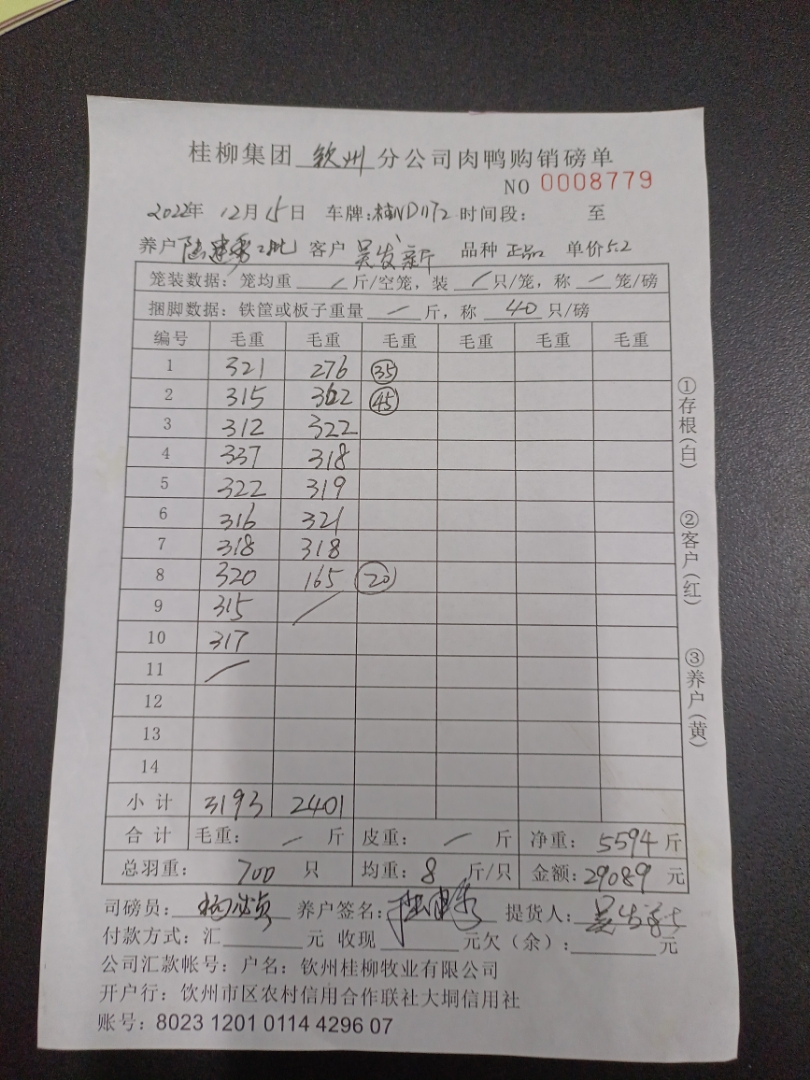 桂柳集团 钦州 分公司肉鸭购销磅单
NO 0008779
2022年 12月15日 车牌:桂ND1172 时间段: 至
养户 二批 客户 吴发新 品种 正品 单价5.2
笼装数据: 笼均重 / 斤/空笼, 装 / 只/笼, 称 / 笼/磅
捆脚数据: 铁筐或板子重量 / 斤, 称 40 只/磅
编号 毛重 毛重 毛重 毛重 毛重 毛重
1 321 276 35
2 315 362 45
3 312 322
4 337 318
5 322 319
6 316 321
7 318 318
8 320 165 20
9 315 /
10 317
11 /
12
13
14
小计 3193 2401
合计 毛重: / 斤 皮重: / 斤 净重: 5594 斤
总羽重: 700 只 均重: 8 斤/只 金额: 29089 元
司磅员: 养户签名: 提货人: 吴发新
付款方式: 汇 元 收现 元欠(余): 元
公司汇款帐号: 户名: 钦州桂柳牧业有限公司
开户行: 钦州市区农村信用合作联社大垌信用社
账号: 8023 1201 0114 4296 07
①存根(白)
②客户(红)
③养户(黄)